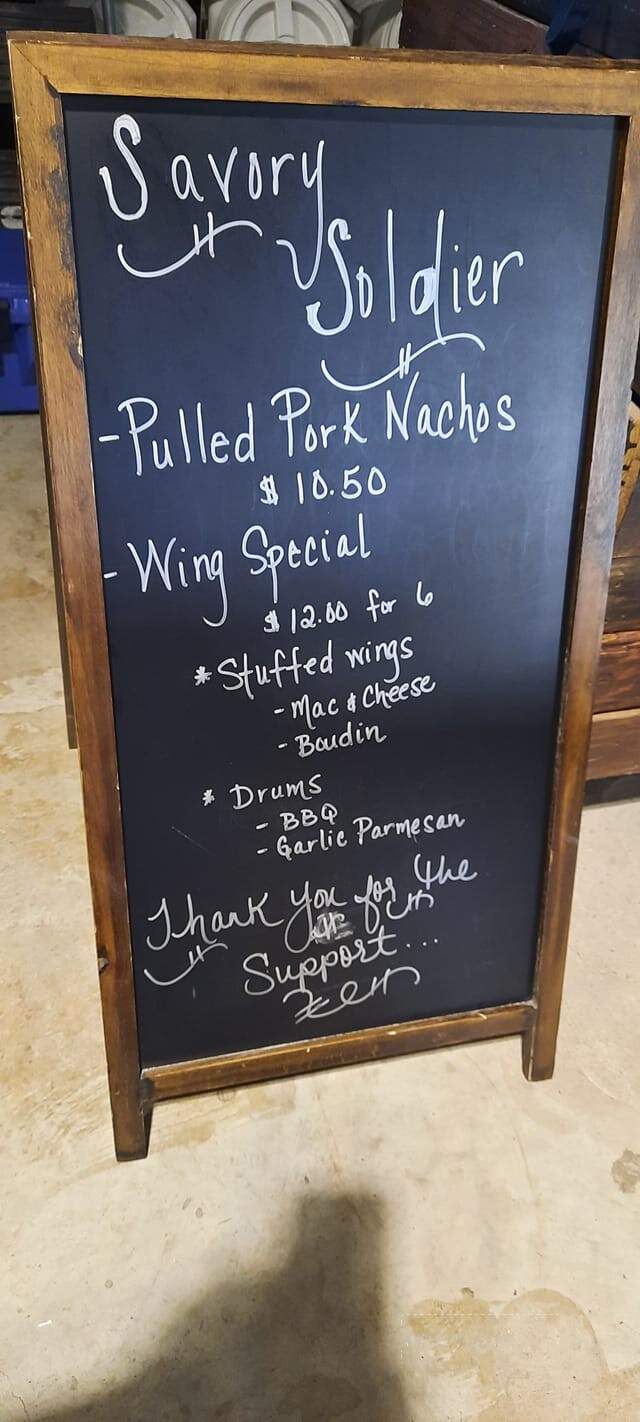 Savory
Soldier
- Pulled Pork Nachos
$ 10.50
- Wing Special
$ 12.00 for 6
* Stuffed wings
- Mac & Cheese
- Boudin
* Drums
- BBQ
- Garlic Parmesan
Thank you for the
Support...